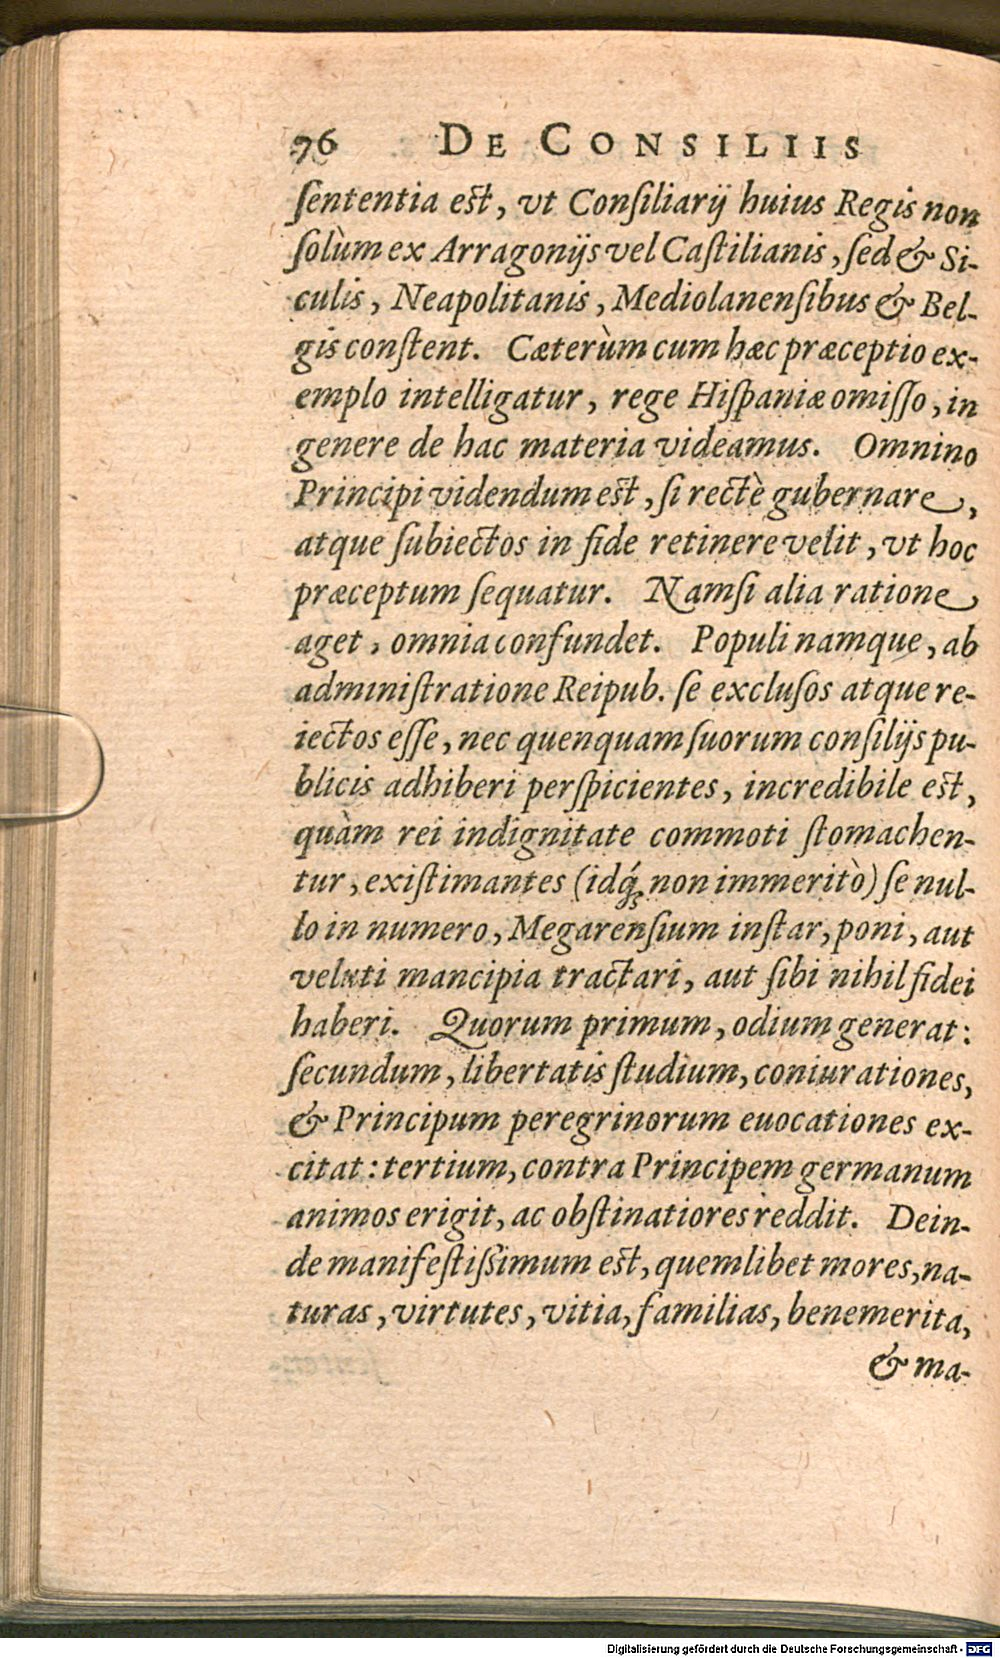 76 DE CONSILIIS
ſententia est, vt Conſiliarij huius Regis non
ſolùm ex Arragonijs vel Caſtilianis, ſed & Si-
culis, Neapolitanis, Mediolanenſibus & Bel-
gis conſtent. Cæterùm cum hæc præceptio ex-
emplo intelligatur, rege Hiſpaniæ omiſſo, in
genere de hac materia videamus. Omnino
Principi videndum est, ſi rectè gubernare,
atque ſubiectos in fide retinere velit, vt hoc
præceptum ſequatur. Nam ſi alia ratione
aget, omnia confundet. Populi namque, ab
adminiſtratione Reipub. ſe excluſos atque re-
iectos eſſe, nec quenquam ſuorum conſilijs pu-
blicis adhiberi perſpicientes, incredibile est,
quàm rei indignitate commoti ſtomachen-
tur, exiſtimantes (idq́; non immeritò) ſe nul-
lo in numero, Megarenſium inſtar, poni, aut
veluti mancipia tractari, aut ſibi nihil fidei
haberi. Quorum primum, odium generat:
ſecundum, libertatis ſtudium, coniurationes,
& Principum peregrinorum euocationes ex-
citat: tertium, contra Principem germanum
animos erigit, ac obſtinatiores reddit. Dein-
de manifeſtiſsimum est, quemlibet mores, na-
turas, virtutes, vitia, familias, benemerita,
& ma-
Digitalisierung gefördert durch die Deutsche Forschungsgemeinschaft - DFG